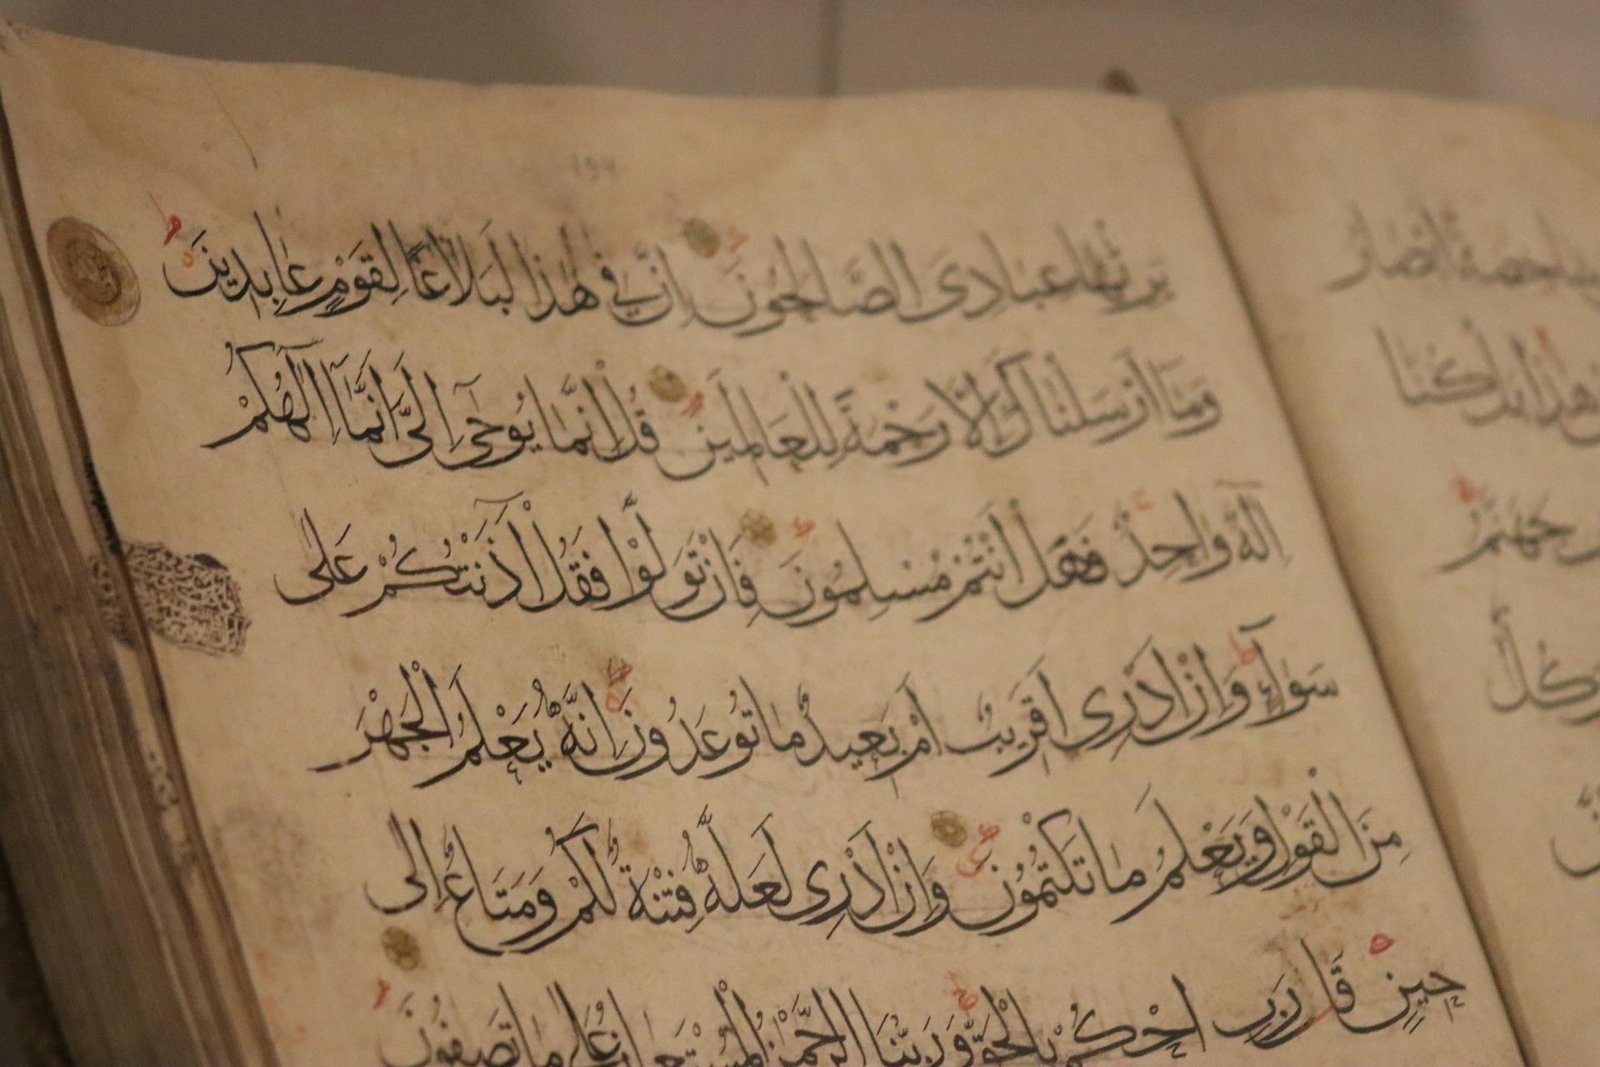 يرثها عبادي الصالحون إن في هذا لبلاغا لقوم عابدين
وما أرسلناك إلا رحمة للعالمين قل إنما يوحى إلي أنما إلهكم
إله واحد فهل أنتم مسلمون فإن تولوا فقل آذنتكم على
سواء وإن أدري أقريب أم بعيد ما توعدون إنه يعلم الجهر
من القول ويعلم ما تكتمون وإن أدري لعله فتنة لكم ومتاع إلى
حين قل رب احكم بالحق وربنا الرحمن المستعان على ما تصفون
جهنم
وكل